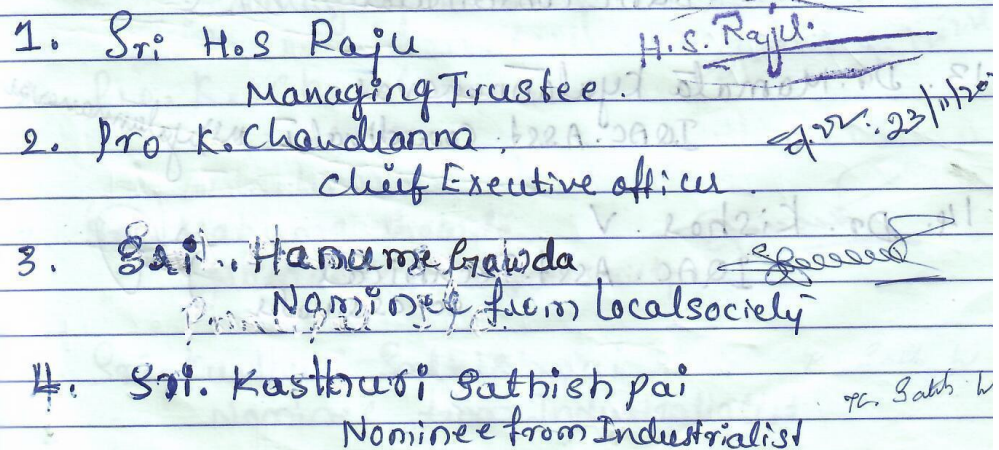 1. Sri H.S Raju H.S. Raju.
Managing Trustee.
2. Pro K. Chaudianna, 23/11/20
Chief Executive officer.
3. Sri. Hanume Gawda
Nominee from Localsociety
4. Sri. Kasthuri Sathish pai
Nominee from Industrialist